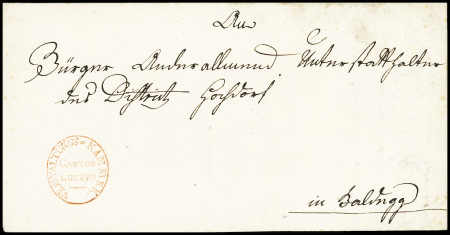 An
Bürger Anderallmend Unterstatthalter
des Distrikts Hochdorf
VERWALTUNGS-KAMMER
CANTON
LUZERN
in Baldegg